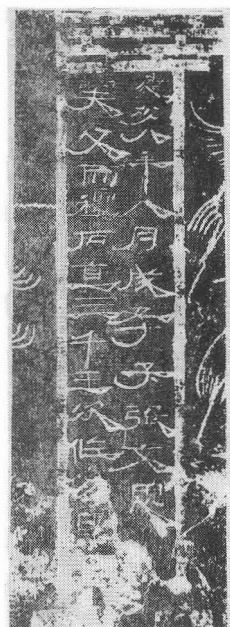 建初八年八月成孝子張文思
哭父而禮石直三千王次作勿敗